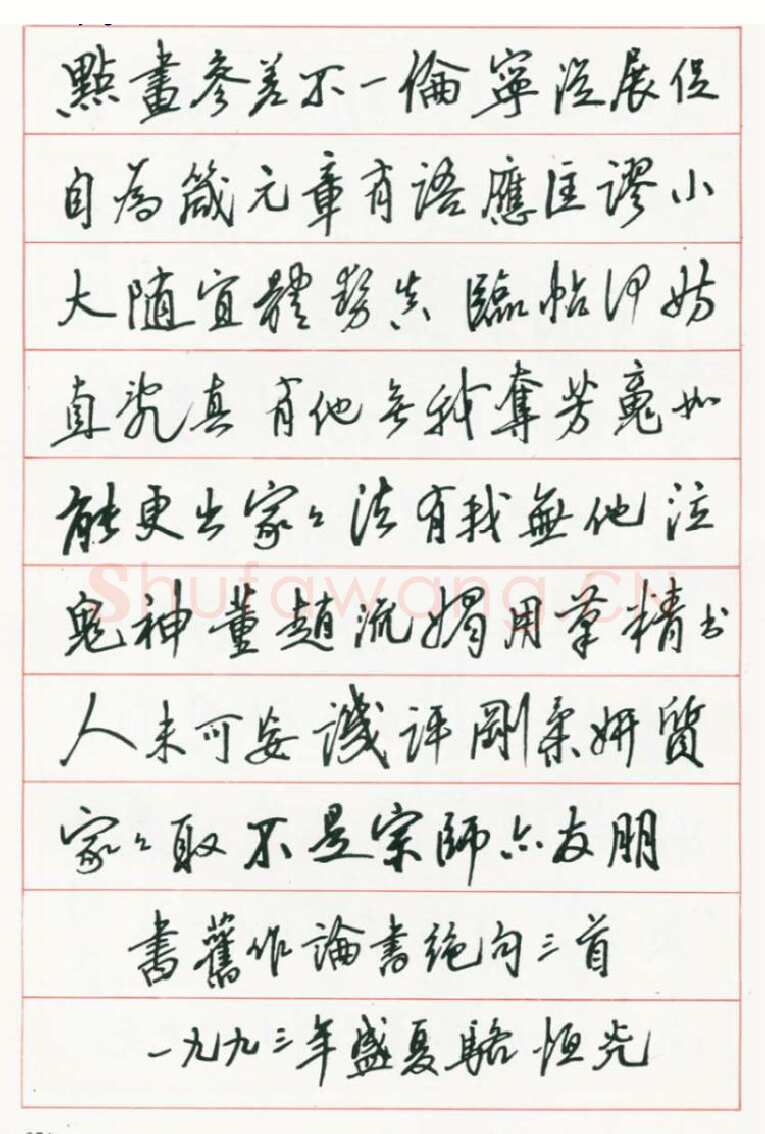 點畫參差不一倫寧從展促
自為箴元章有語應匡謬小
大隨宜體勢真臨帖何妨
直究真有他無我奪芳魂如
能更出家〻法有我無他泣
鬼神董趙流媚用筆精書
人未可妄譏評剛柔妍質
家〻取不是宗師亦友朋
書舊作論書絕句三首
一九九三年盛夏駱恒光
Shufawang.CN